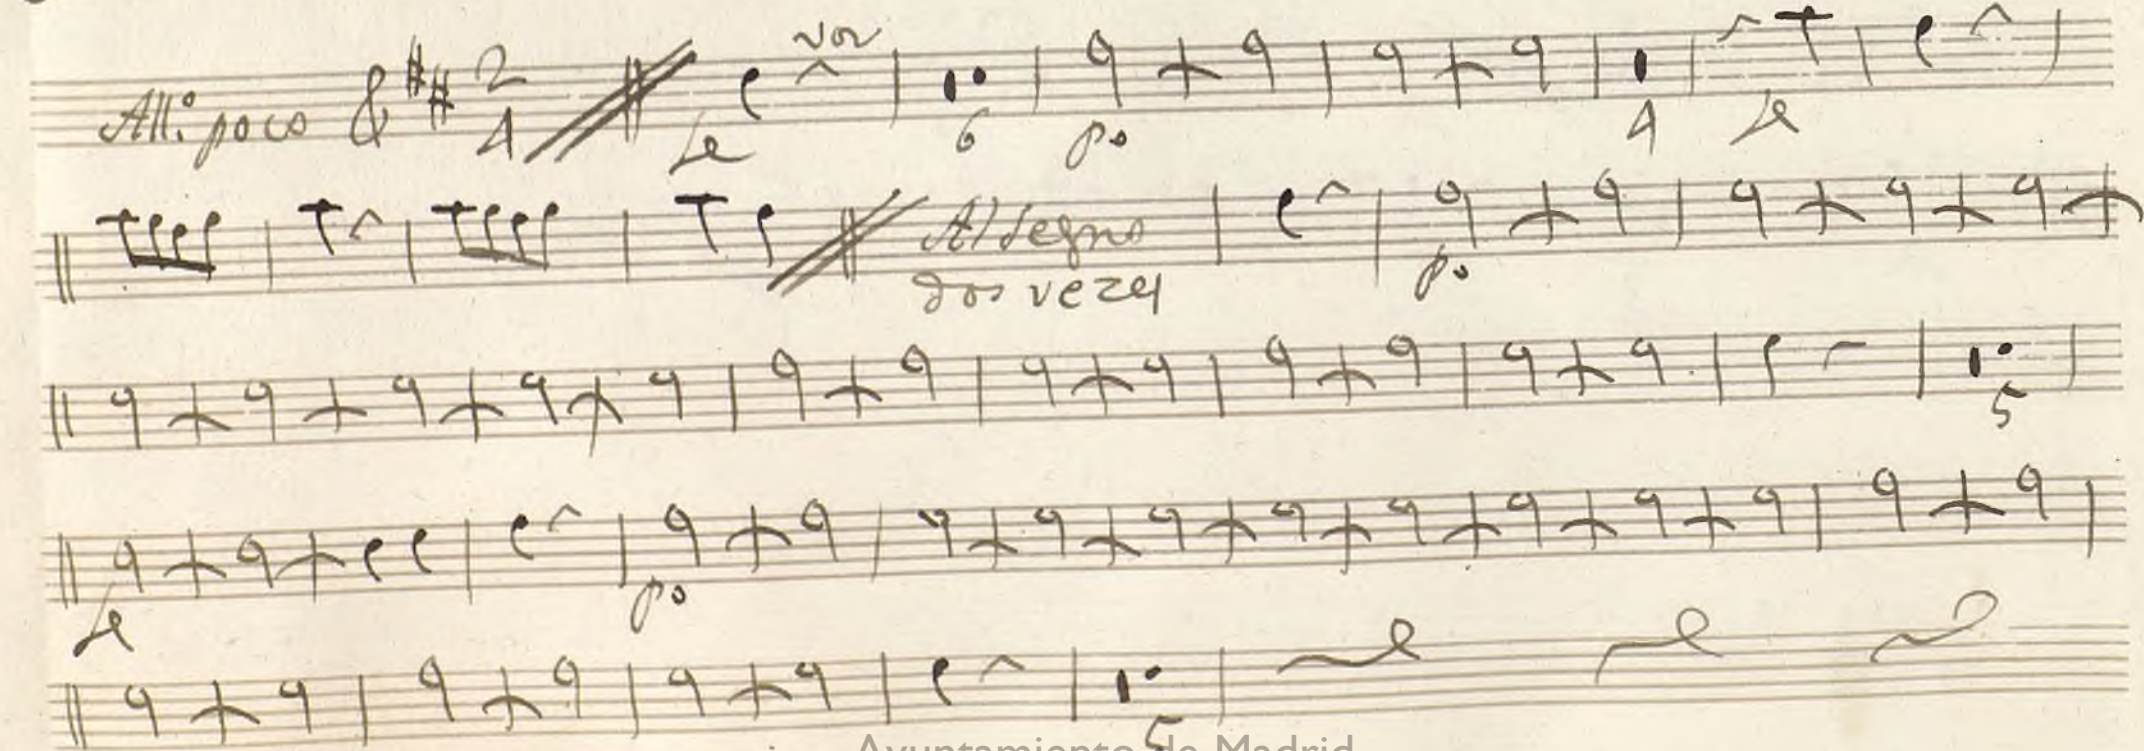 All.º poco 2 4 voz
Le 6 po 4 Le
Al Segno
dos vezes po
5
Le po
5
Ayuntamiento de Madrid